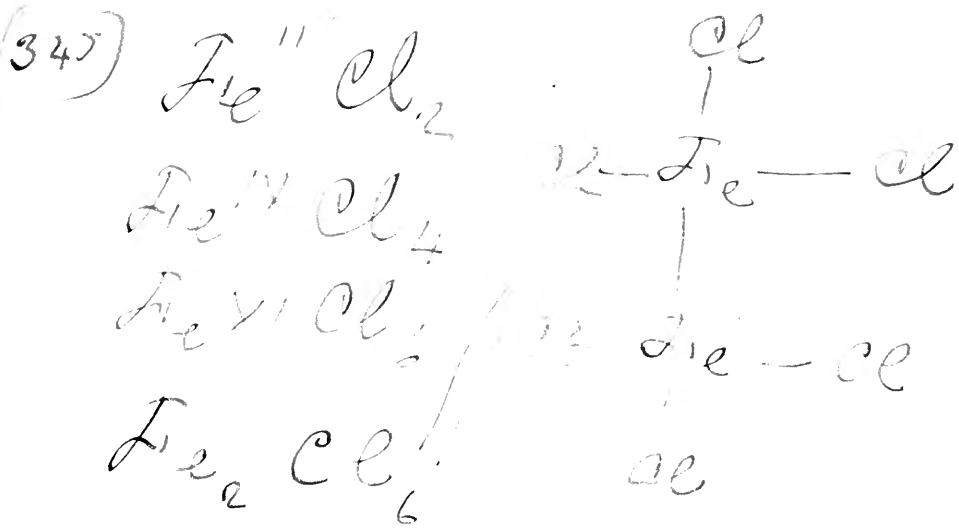 (345)
Fe'' Cl2
Fe IV Cl4
Fe VI Cl6
Fe2 Cl6
Cl
Cl — Fe — Cl
Fe — Cl
Cl